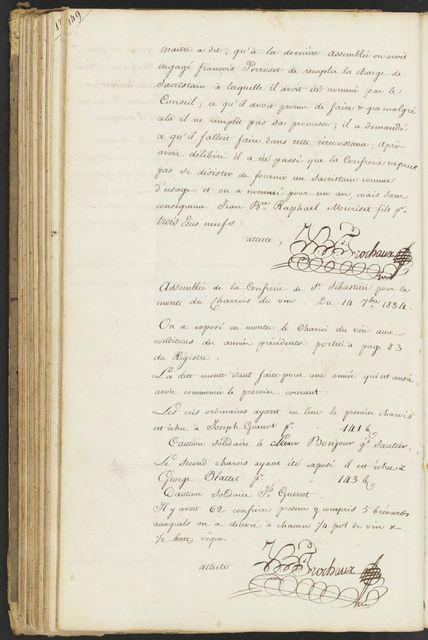 pe 149
maitre a dit, qu'à la derniere assemblée on avoit
engagé francois Perroset de remplir la charge de
Sacristain à laquelle il avoit été nommé par le
Conseil; ce qu'il avoit promis de faire & que malgré
cela il ne remplit pas sa promesse; il a demandé
a qu'il falloit faire dans cette circonstance; Après
avoir déliberé il a été passé que la Confrerie ne peut
pas se desister de fournir un Sacristain comme
d'usage et on a nommé pour un an, mais sans
consequence Jean Bte Raphael Muriset fils pr
trois Ecus neufs.
atteste,
Frochaux
Assemblée de la Confrerie de St Sébastien pour la
monte du Charrois du vin. Du 14 7bre 1834.
On a exposé en monte le Charroi du vin aux
conditions des années précédentes portées à page 23
du Régistre.
La dite monte étant faite pour une année qui est censée
avoir commencée le premier courant.
Les cris ordinaires ayant eu lieu le premier charois
est échu à Joseph Guenot pr 141 b
Caution solidaire le Sieur Bonjour gd Sautier.
Le second charois ayant été exposé il est échu à
George Blattet pr 143 b
Caution solidaire Jh Guenot.
Il y avoit 62 confrères présens y compris 5 brévards
auxquels on a délivré à chacun 1/4 pot de vin &
1/2 batz vêque.
atteste
Frochaux